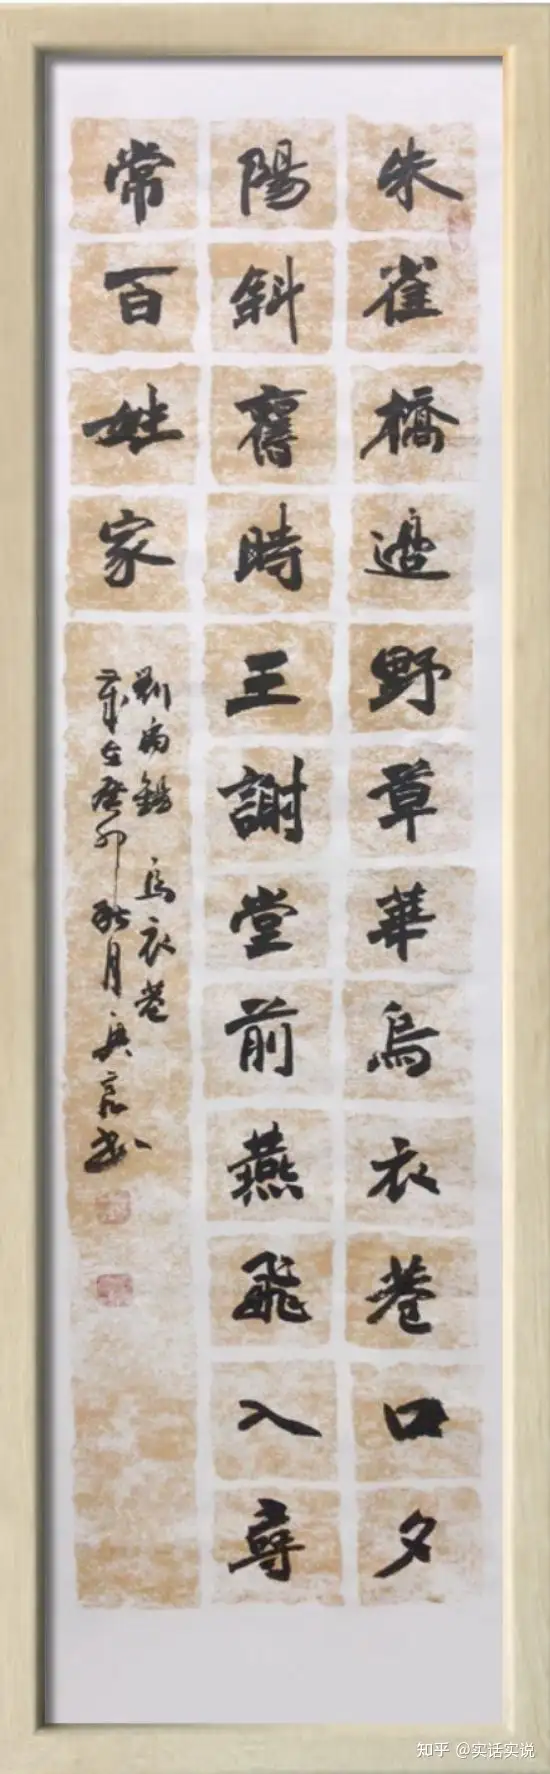 朱雀橋邊野草華烏衣巷口夕
陽斜舊時王謝堂前燕飛入尋
常百姓家
劉禹錫 烏衣巷
歲在癸卯秋月兵亮书
知乎 @实话实说